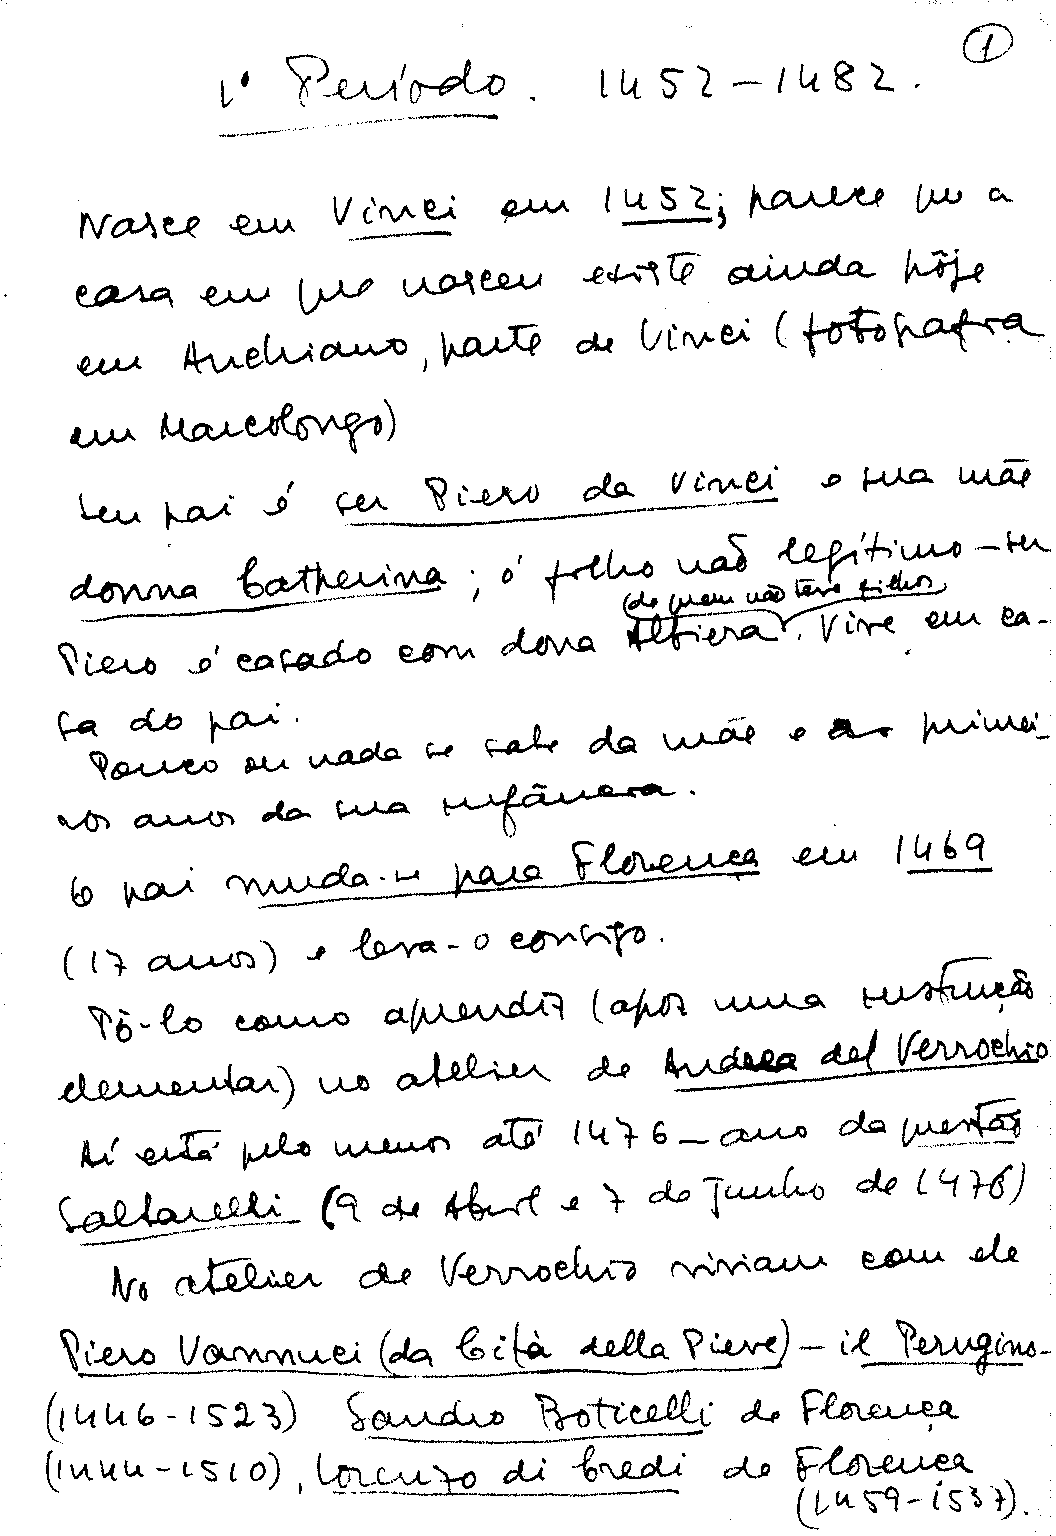 1
1º Período. 1452-1482.
Nasce em Vinci em 1452; parece que a
casa em que nasceu existe ainda hôje
em Anchiano, parte de Vinci (fotografia
em Marcolongo)
Seu pai é ser Piero da Vinci e sua mãe
donna Catherina; é filho não legítimo - ser
(de quem não teve filhos)
Piero é casado com dona Albiera. Vive em ca-
sa do pai.
Pouco ou nada se sabe da mãe e os primei-
ros anos da sua infância.
O pai muda-se para Florença em 1469
(17 anos) e leva-o consigo.
Pô-lo como aprendiz (após uma instrução
elementar) no atelier de Andrea del Verrochio
Aí está pelo menos até 1476 - ano da questão
Saltarelli (9 de Abril e 7 de Junho de 1476)
No atelier de Verrochio viviam com ele
Piero Vannuci (da Cità della Pieve) - il Perugino -
(1446-1523) Sandro Boticelli de Florença
(1444-1510), Lorenzo di Credi de Florença
(1459-1537).